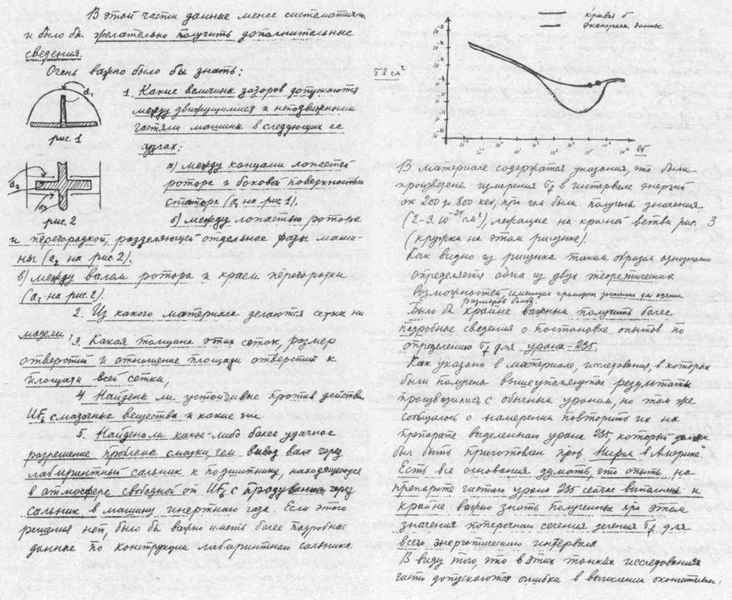 В этой части данные менее систематичн
и было бы желательно получить дополнительные
сведения.
Очень важно было бы знать:
1. Какие величины зазоров допускаются
между движущимися и неподвижными
частями машины в следующих ее
узлах:
а) между концами лопастей
ротора и боковой поверхностью
статора (a₁ на рис 1),
б) между лопастью ротора
и перегородкой, разделяющей отдельные фазы маши-
ны (a₂ на рис 2).
в) между валом ротора и краем перегородки
(a₃ на рис. 2).
2. Из какого материала делаются сетки на
модели
3. Какая толщина этих сеток, размер
отверстий и отношение площади отверстий к
площади всей сетки,
4. Найдены ли устойчивые против действия
UF₆ смазочные вещества и какие
5. Найдено ли какое-либо более удачное
разрешение проблемы смазки, чем вывод вала через
лабиринтный сальник к подшипнику, находящемуся
в атмосфере свободной от UF₆ с продуванием через
сальник в машину инертного газа. Если этого
решения нет, было бы важно иметь более подробные
данные по конструкции лабиринтного сальника
a₁
рис 1
a₂
a₃
рис. 2
кривая
В материале содержатся указания, что были
произведены измерения σf в интервале энергий
от 200 до 800 кев, при чем были получены значения
(2-3·10⁻²⁴ см²), лежащие на кривой ветви рис. 3
(кружки на этом рисунке).
Как видно из рисунка таким образом однозначно
определяется одна из двух теоретических
возможностей, имеющих
размеров бомб
Было бы крайне важным получить более
подробные сведения о постановке опытов по
определению σf для урана-235.
Как указано в материале, исследования, в которых
были получены вышеупомянутые результаты
производились с обычным ураном, но там же
сообщалось о намерении повторить их на
препарате выделенного урана 235, который должен
был быть приготовлен проф.
Есть все основания думать, что опыты на
препарате чистого урана 235 сейчас выполнены и
крайне важно знать полученные при этом
значения поперечного сечения деления σf для
всего энергетического интервала
В виду того, что в этих тонких исследованиях
часто допускаются ошибки в вычислении